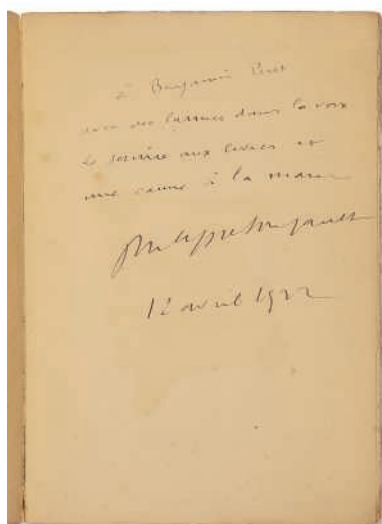 à Benjamin Péret
avec des larmes dans la voix
le sourire aux lèvres et
une canne à la main
Philippe Soupault
12 avril 1922